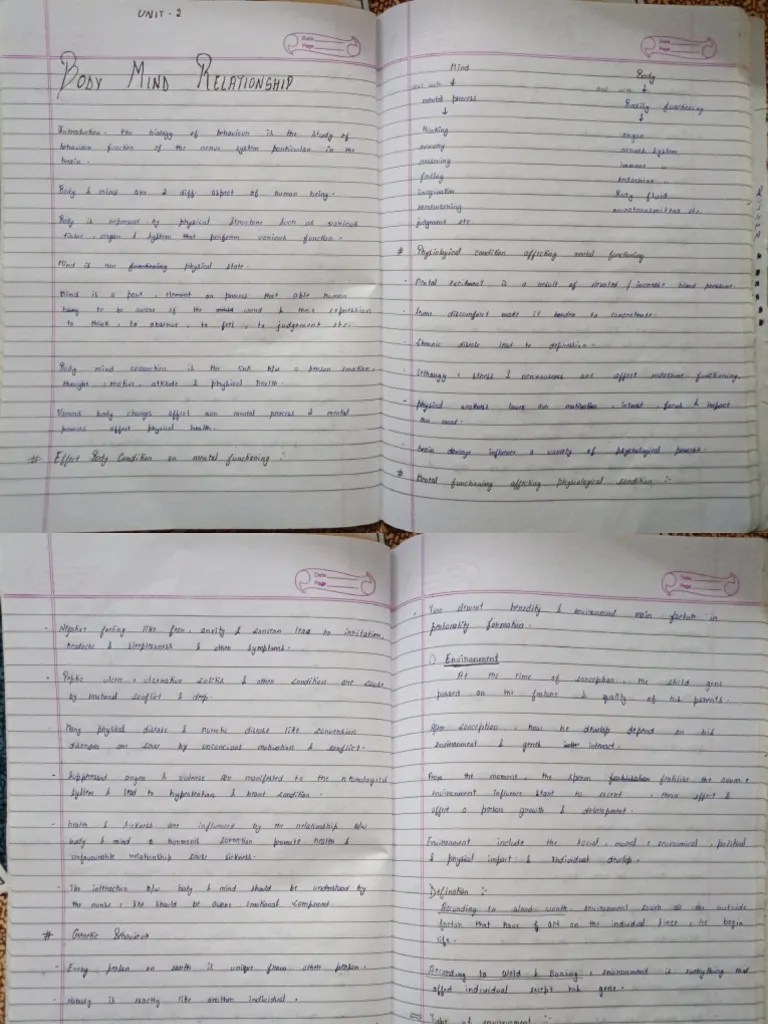 UNIT - 2
Date
Page
BODY MIND RELATIONSHIP
Introduction - The biology of behaviour is the study of
behaviour function of the nerve system particular in the
brain.
Body & mind are 2 diff aspect of human being.
Body is represent by physical structure such as various
tissue, organ & system that perform various function.
Mind is non physical state.
Mind is a part, element or process that able human
to be aware of the world & their
to think, to observe, to feel, to judgement etc.
Body mind connection is the link b/w a person emotion,
thought, motive, attitude & physical health.
Various body changes affect mental process & mental
process affect physical health.
# Effect Body Condition on mental functioning :-
Date
Page
Mind
mental process
thinking
memory
reasoning
feeling
imagination
judgment etc.
Body
Bodily functioning
organ
endocrine "
Body fluid
neurotransmitter etc.
# Physiological condition affecting mental functioning
- Mental excitment is a result of elevated / increase blood pressure.
- Some discomfort make it harder to concentrate.
- Chronic disease lead to depression.
- Lethargy, stress & nervousness are affect endocrine functioning.
- Physical weakness lower our motivation, interest, focus & impact
our mood.
- Brain damage influence a variety of psychological process.
# Mental functioning affecting physiological condition :-
Date
Page
- Negative feeling like fear, anxity & lead to irritation,
headache & sleeplessness & other symptoms.
- Peptic ulcer, ulcerative colitis & other condition are cause
by emotional conflict &
- Many physical disease & disease like conversion
are cause by unconcious motivation & conflict.
- Suppressed anger & violence are manifested to the
system & lead to hypertension & heart condition.
- Health & sickness are influenced by the relationship b/w
body & mind a promote health &
unfavourable relationship cause sickness.
- The interaction b/w body & mind should be understood by
the nurse, she should be aware emotional component.
# Genetic Behaviour
- Every person on earth is unique from other person.
- Nobody is exactly like another individual.
Date
Page
- Two element heredity & environment main factor in
personality formation.
1) Environment
At the time of conception, the child gens
passed on the feature & quality of his parents.
After conception, how he develop depend on his
environment & genes interact.
From the moment, the sperm fertilise the ovum,
environment influence start to exert, their effect &
affect a person growth & development.
Environment include the social, moral, economical, political
& physical impact & individual develop.
Defination :-
According to environment the outside
factor that have act on the individual since, he begin
life.
According to Weld & Boring, environment is everything that
affect individual except his gene.
⇒ Type of environment :-